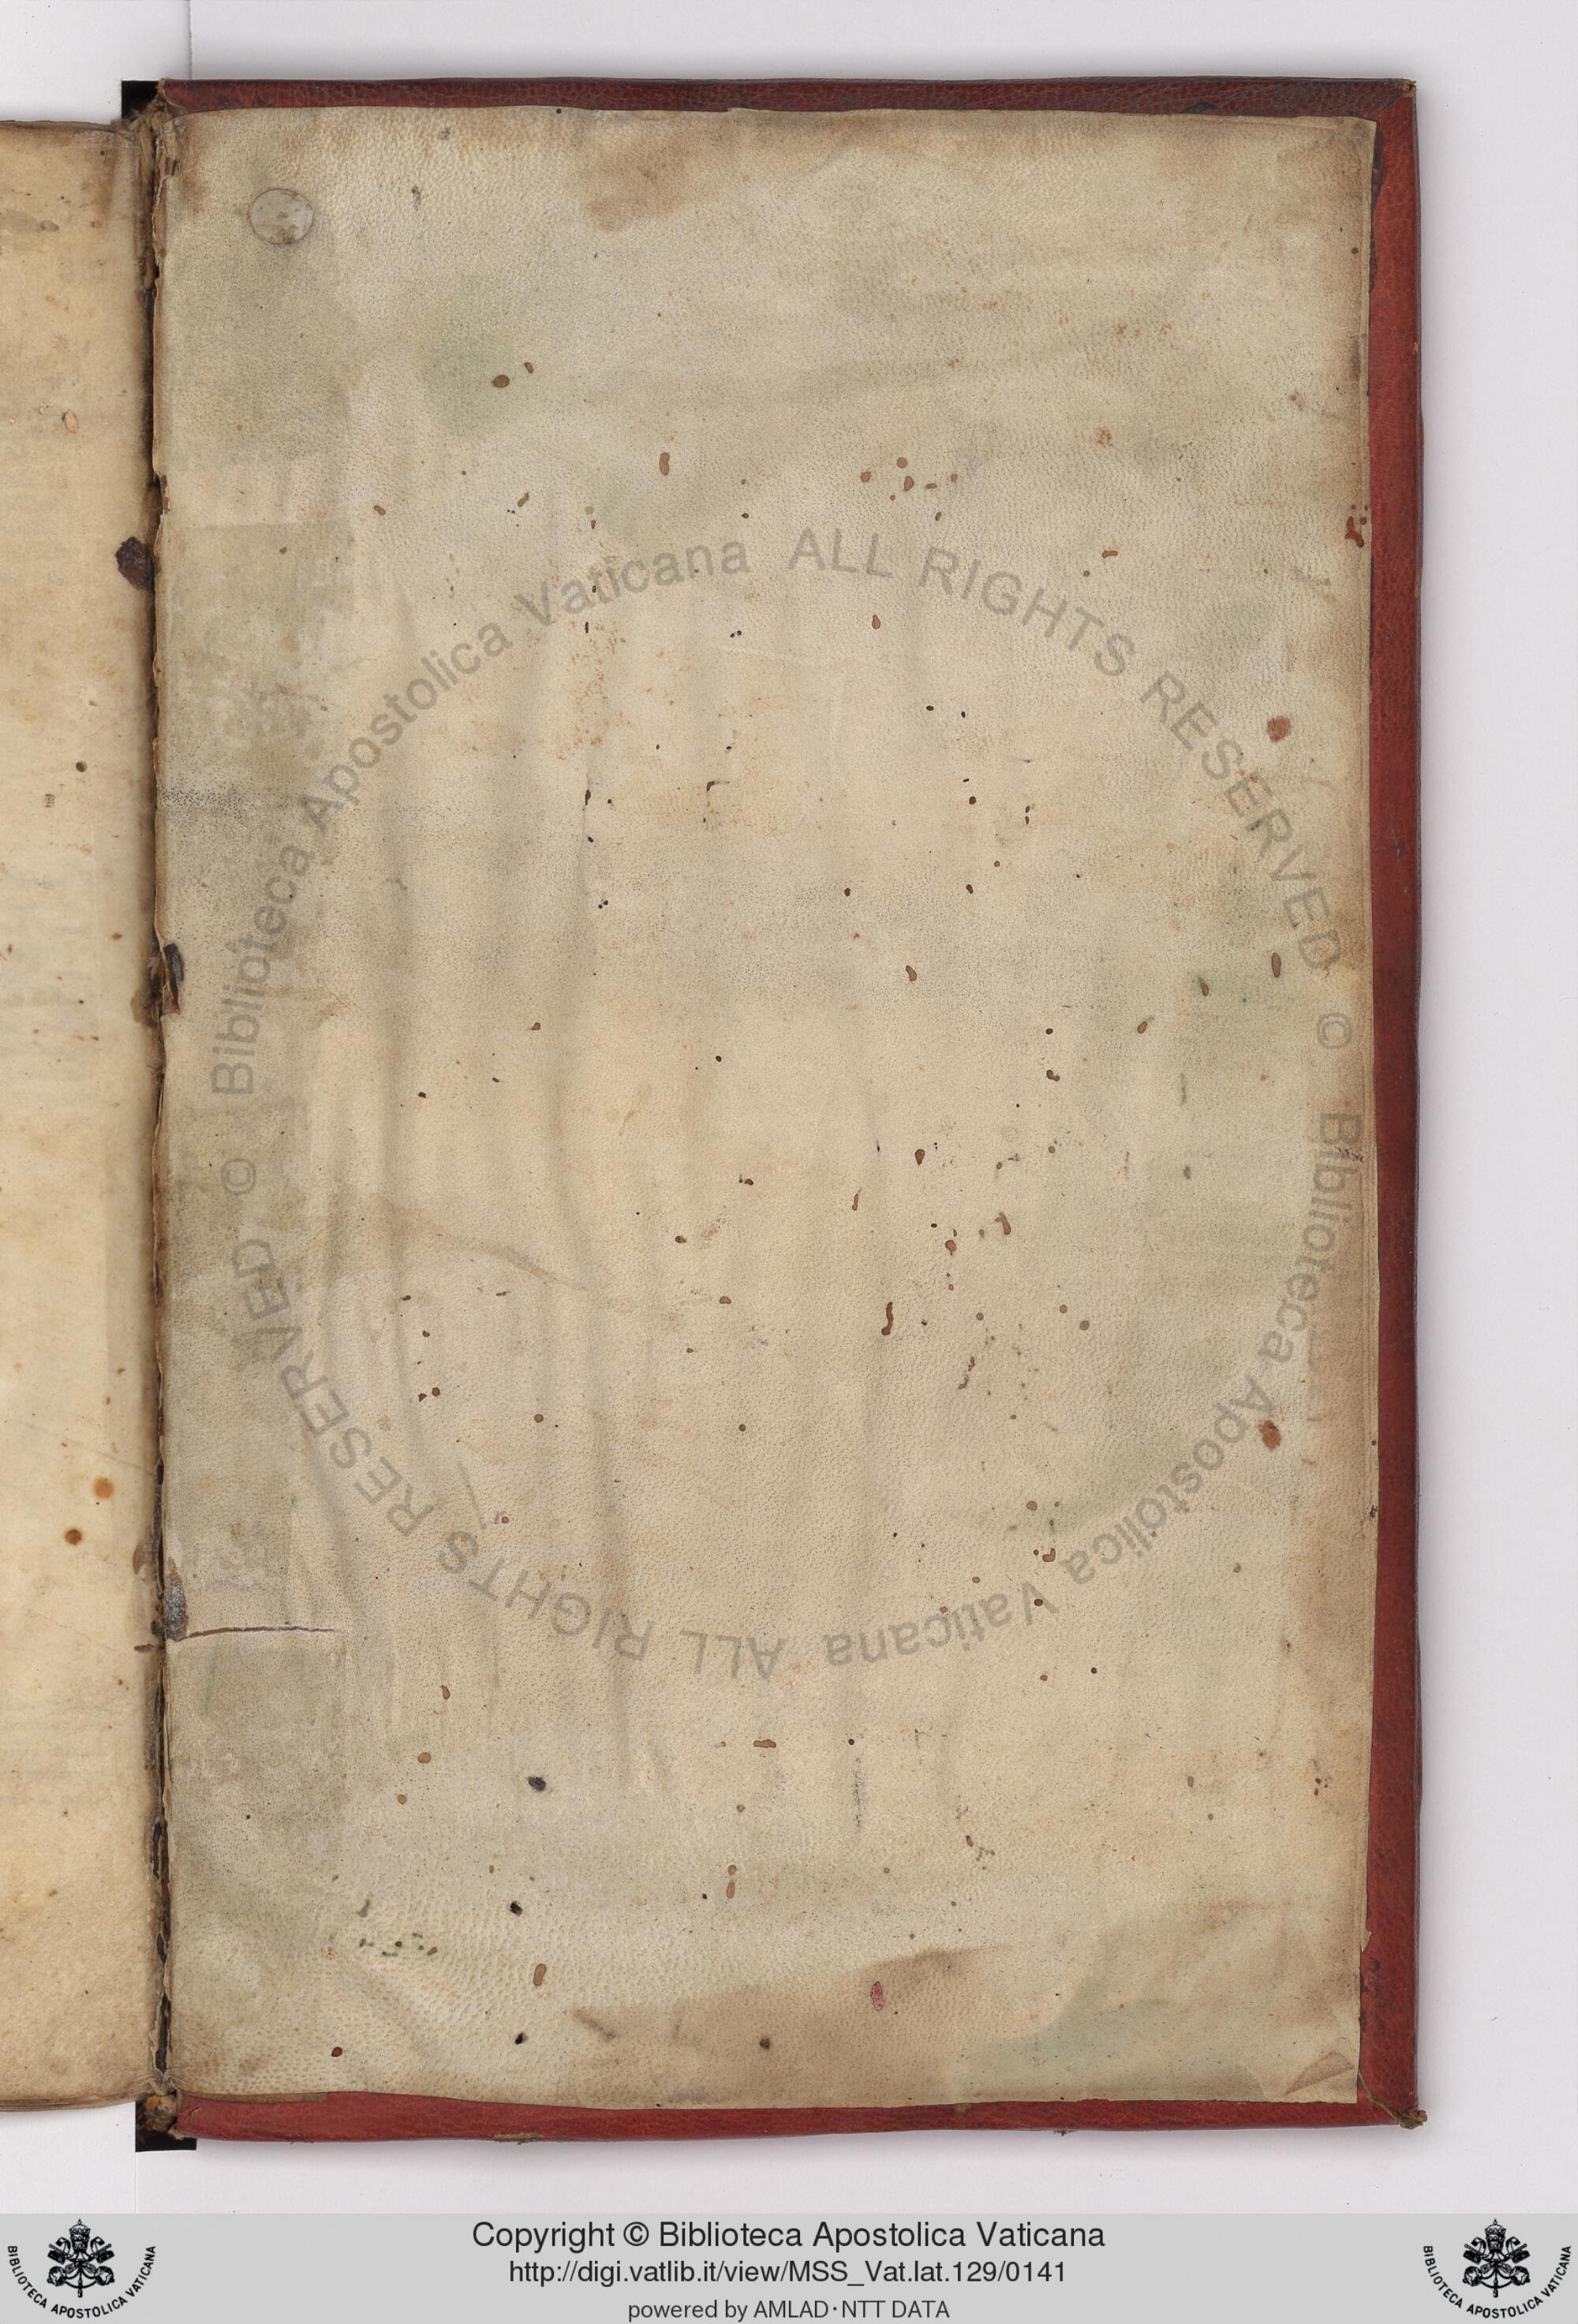 © Biblioteca Apostolica Vaticana ALL RIGHTS RESERVED
© Biblioteca Apostolica Vaticana ALL RIGHTS RESERVED
Copyright © Biblioteca Apostolica Vaticana
http://digi.vatlib.it/view/MSS_Vat.lat.129/0141
powered by AMLAD·NTT DATA
BIBLIOTECA APOSTOLICA VATICANA
BIBLIOTECA APOSTOLICA VATICANA